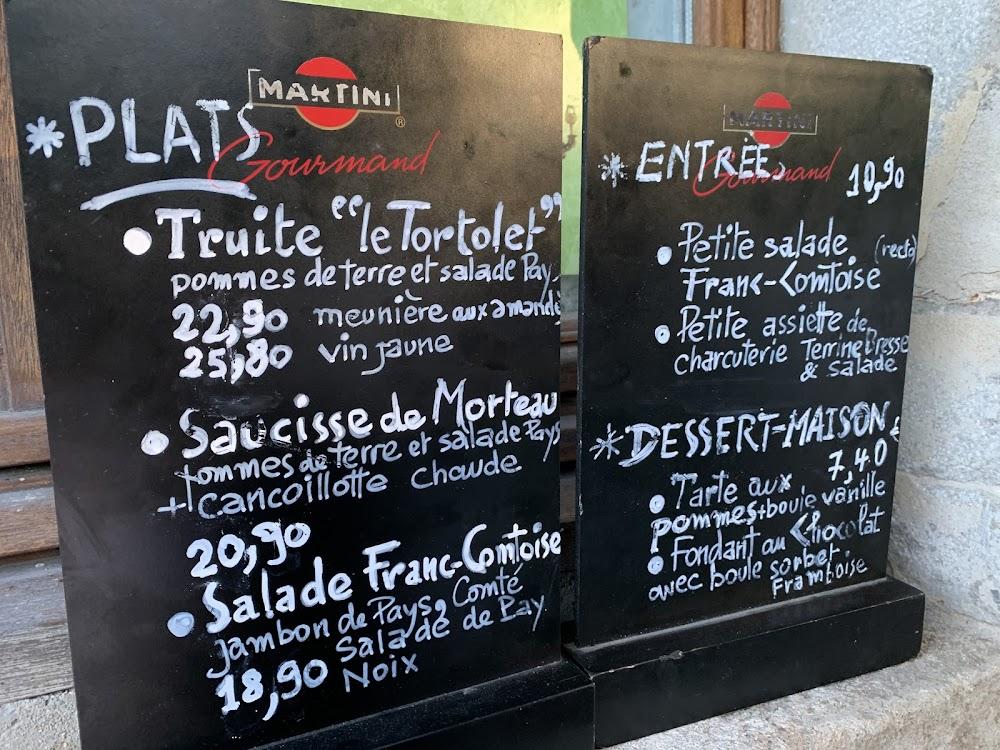 MARTINI ®
Gourmand
* PLATS
• Truite "le Tortolet"
pommes de terre et salade Pay
22,90 meunière aux amande
25,80 vin jaune
• Saucisse de Morteau
pommes de terre et salade Pays
+ cancoillotte chaude
20,90
• Salade Franc-Comtoise
jambon de Pays, Comté
Salade de Pay
18,90 Noix
MARTINI
Gourmand
* ENTRÈE
10,90
• Petite salade (recto)
Franc-Comtoise
• Petite assiette de
charcuterie Terrine Bresse
& salade
* DESSERT-MAISON
7,40
• Tarte aux
pommes+boule vanille
• Fondant au Chocolat
avec boule sorbet
Framboise